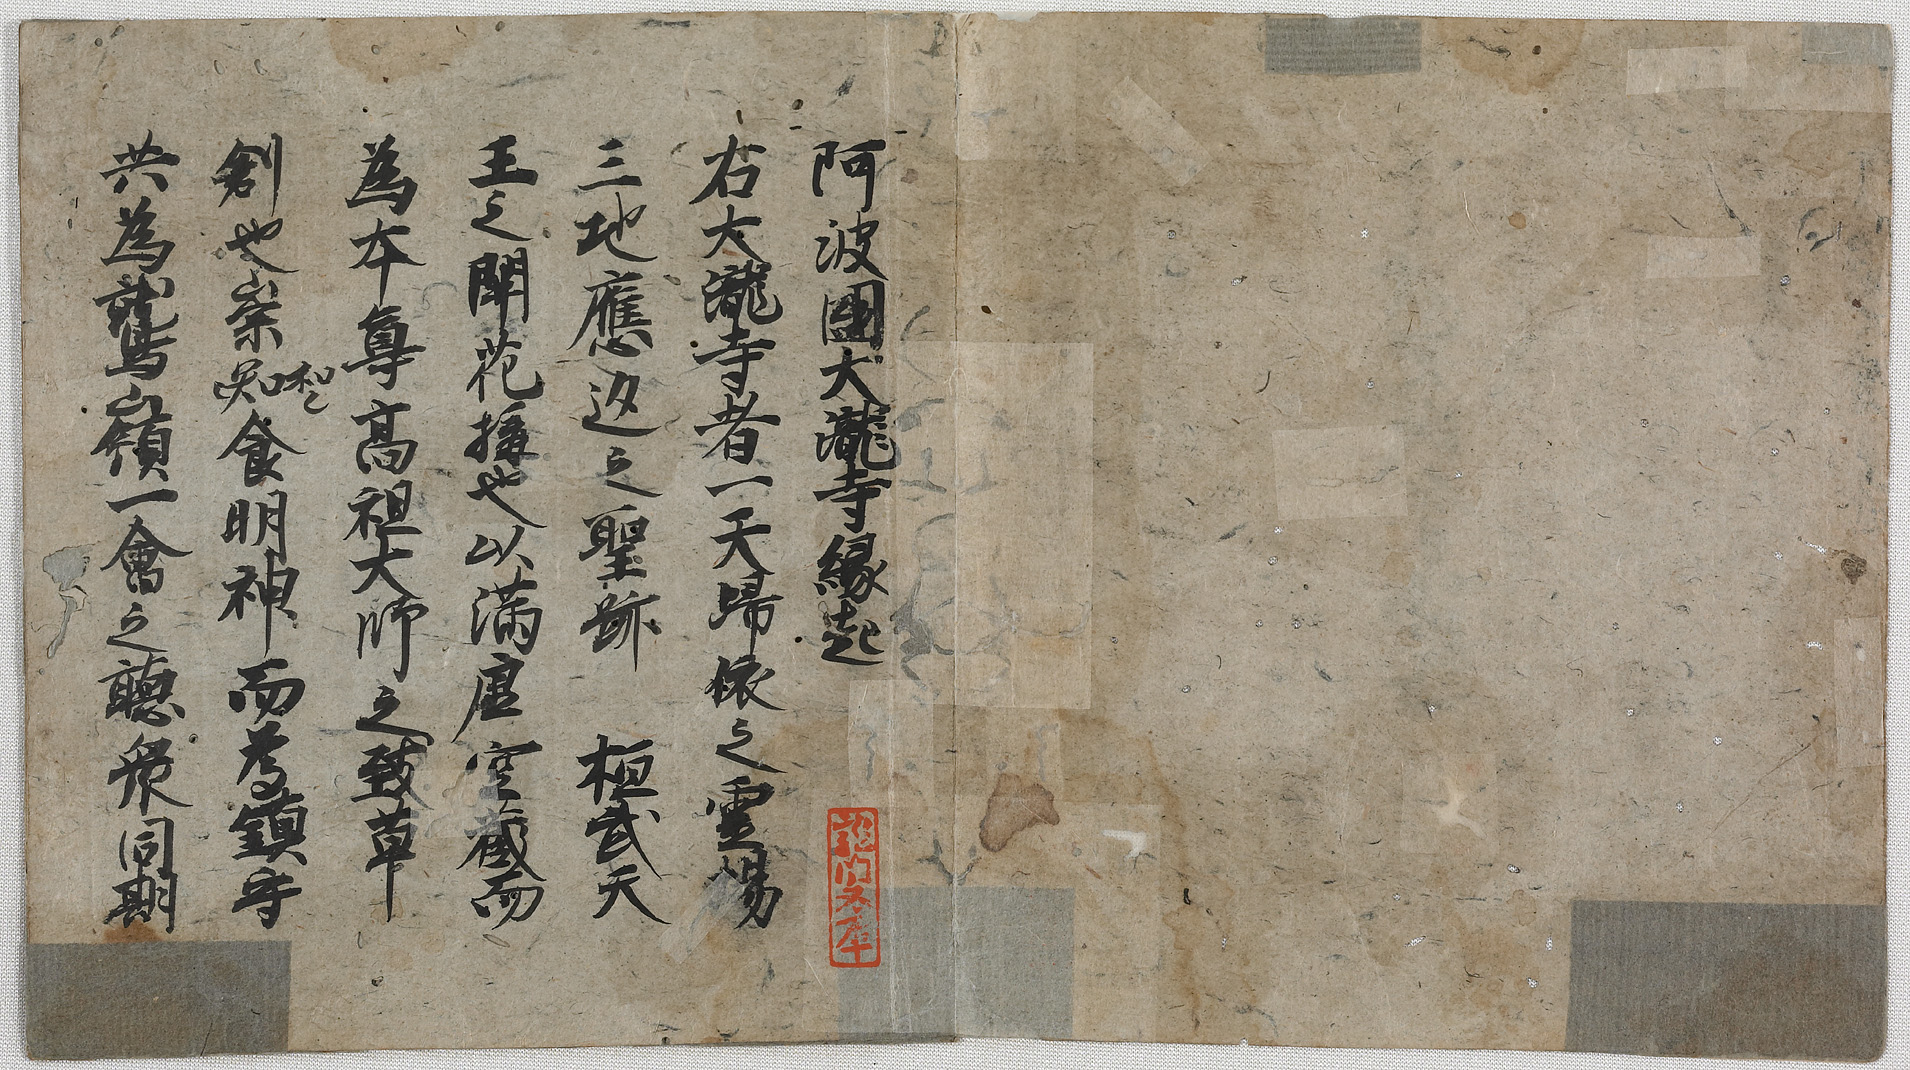 阿波國大瀧寺縁起
右大瀧寺者一天歸依之霊場
三地應迹之聖跡　桓武天
王之開花搆也以満虚空蔵而
為本尊高祖大師之致草
創也崇食明神而為鎮守
共為鷲嶺一會之聴衆同期
龍門文庫